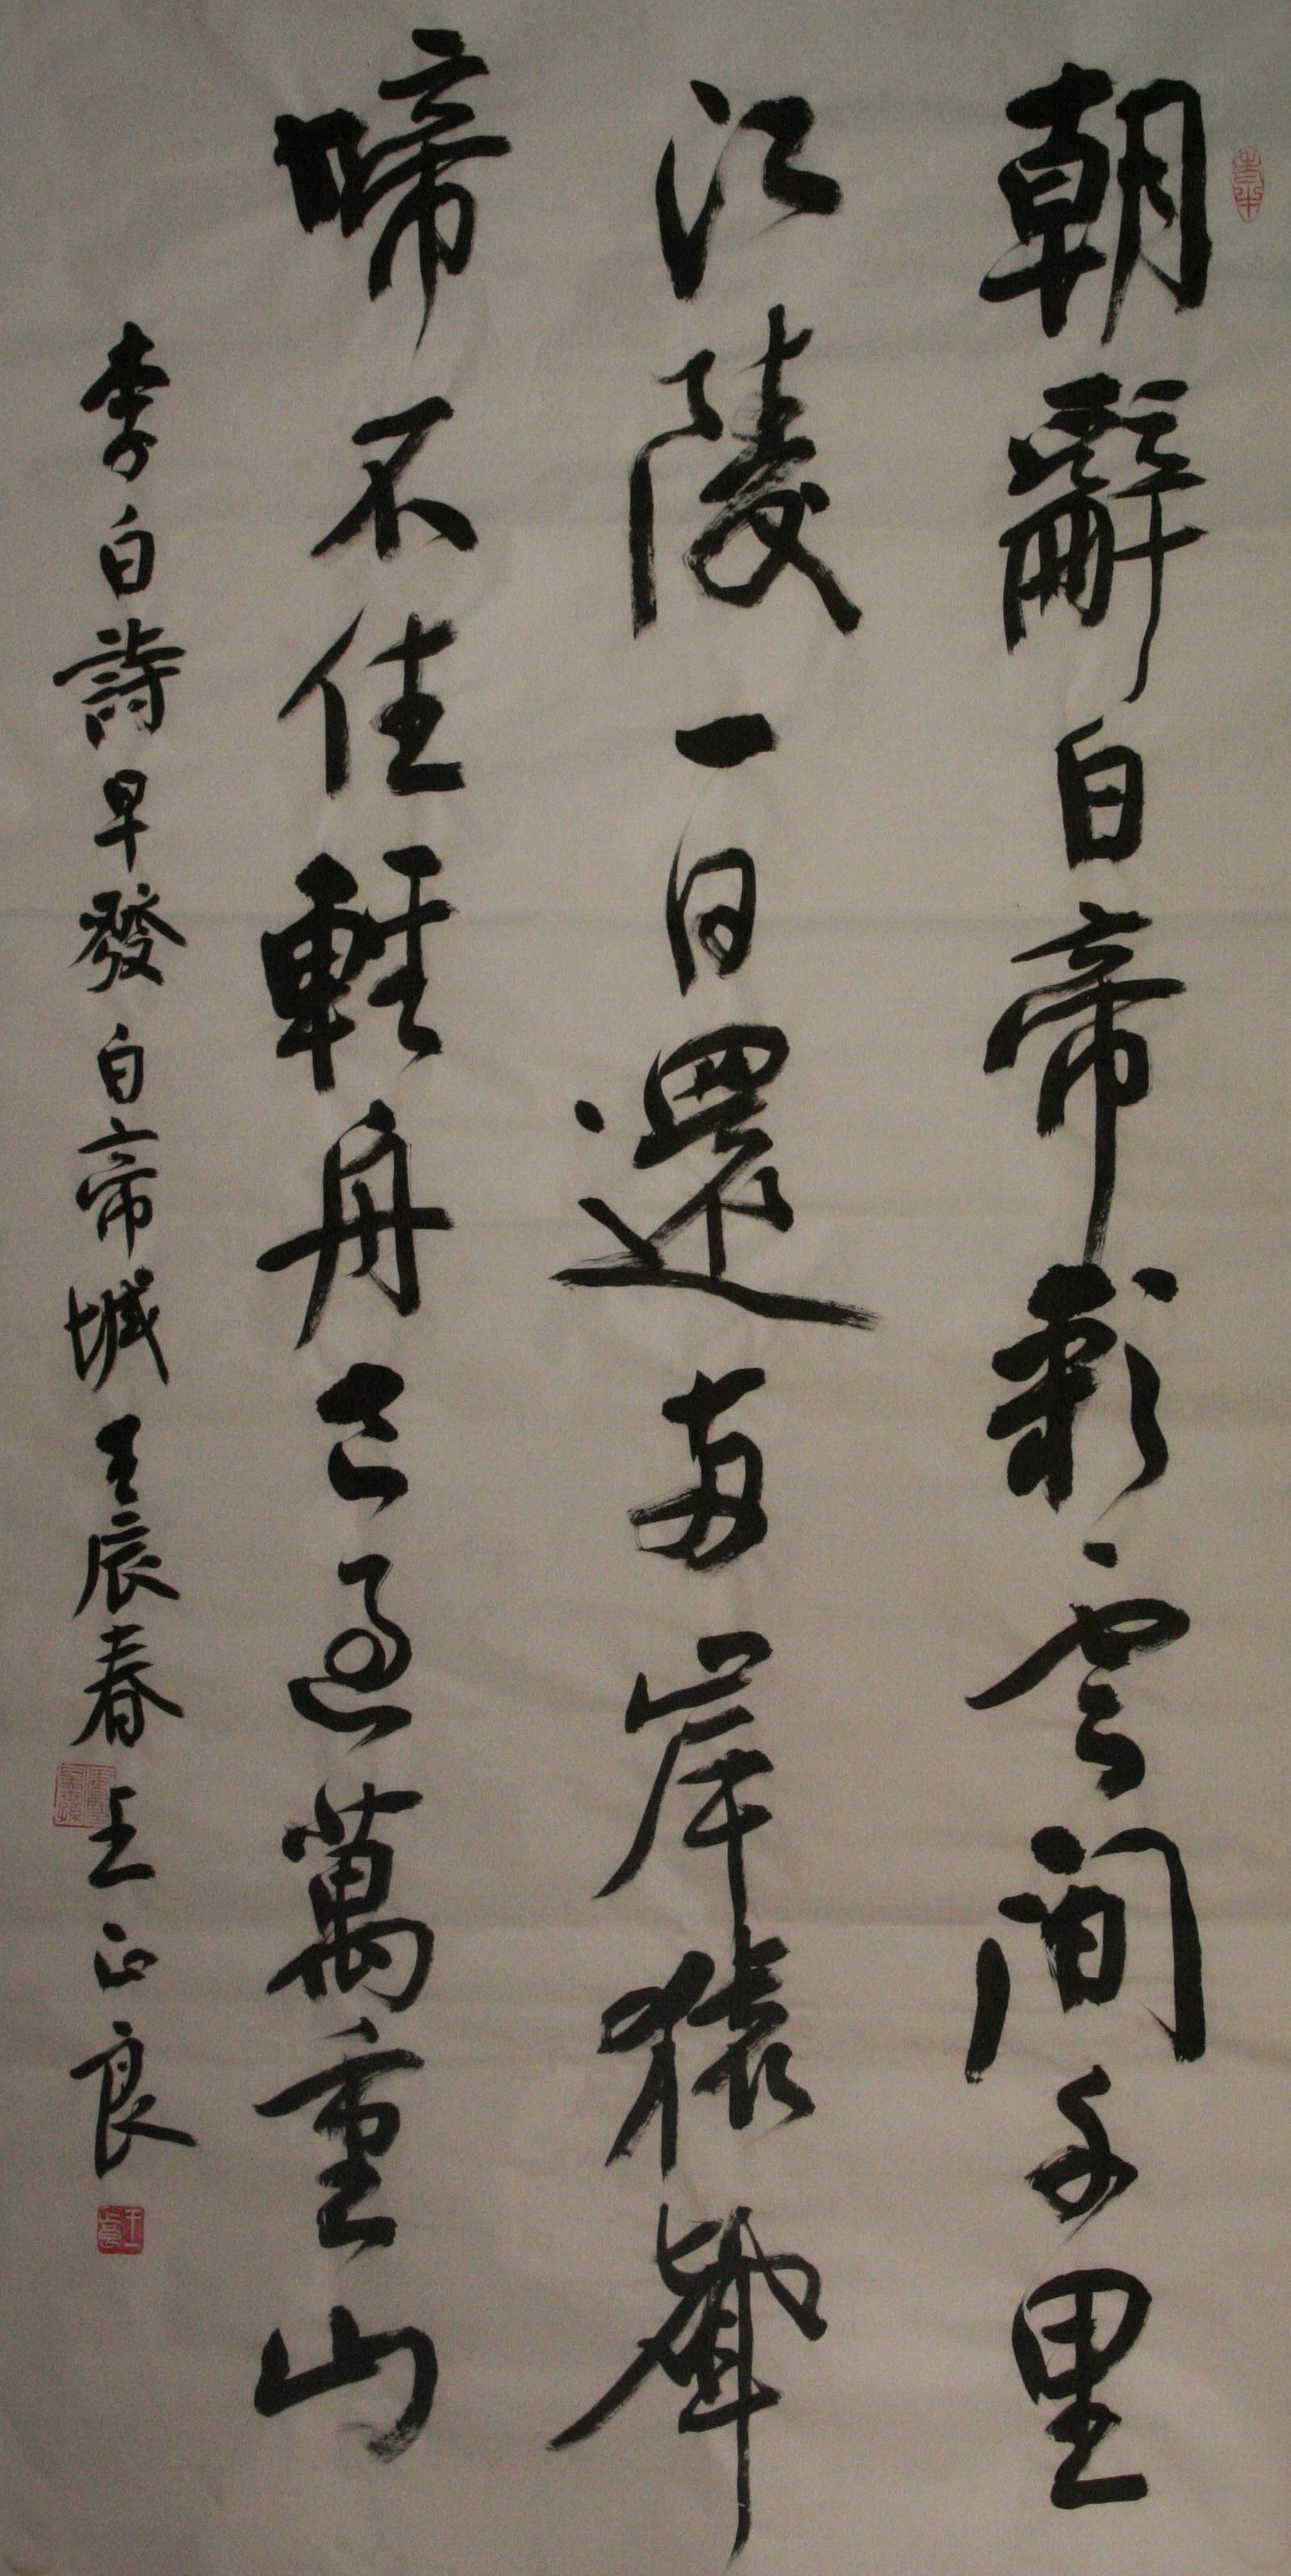 朝辭白帝彩雲間千里
江陵一日還兩岸猿聲
啼不住輕舟已過萬重山
李白詩早發白帝城壬辰春王正良